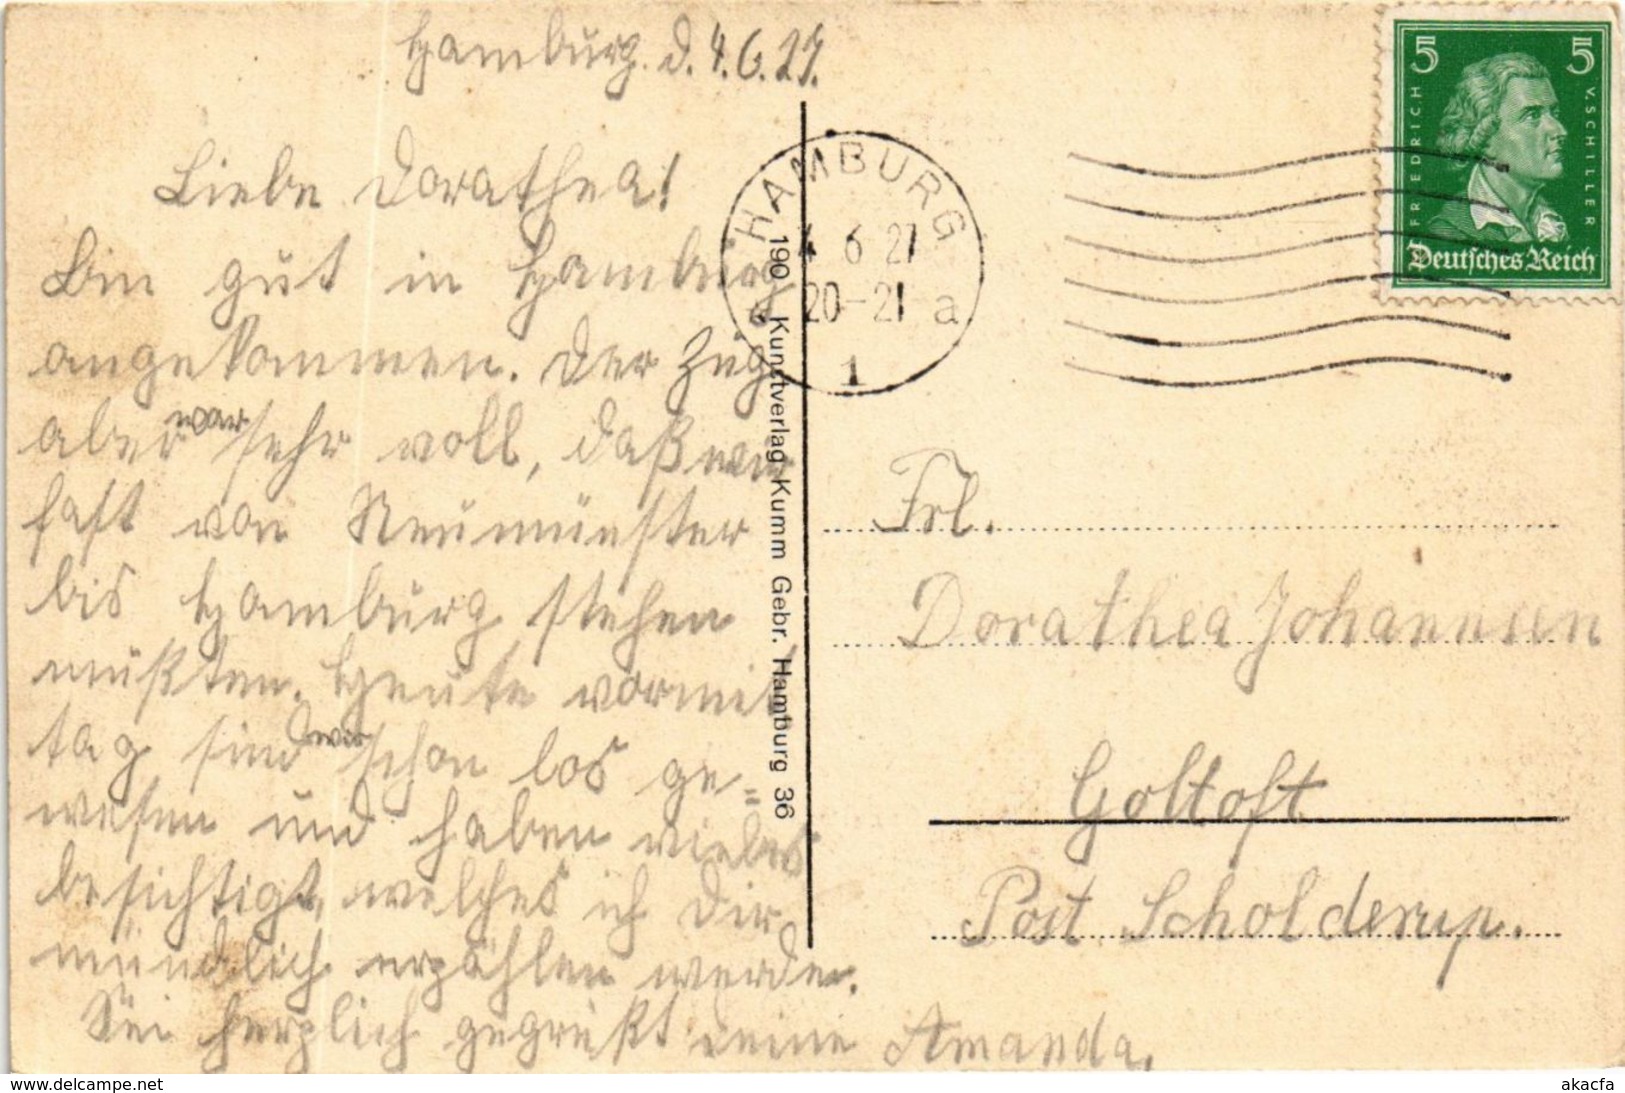 Hamburg. d. 4.6.27.
Liebe Dorathea!
Bin gut in Hamburg
angekommen. Der Zug
aber war sehr voll, daß wir
fast von Neumünster
bis Hamburg stehen
mußten. Heute vormit
tag sind wir schon los ge„
wesen und haben vieles
besichtigt, welches ich Dir
mündlich erzählen werde.
Sei herzlich gegrüßt deine Amanda.
HAMBURG
4 6 27
20-21 a
1
5 5
FRIEDRICH V. SCHILLER
Deutsches Reich
190 Kunstverlag Kumm Gebr. Hamburg 36
Frl.
Dorathea Johannsen
Goltoft
Post Scholderup.
www.delcampe.net
akacfa